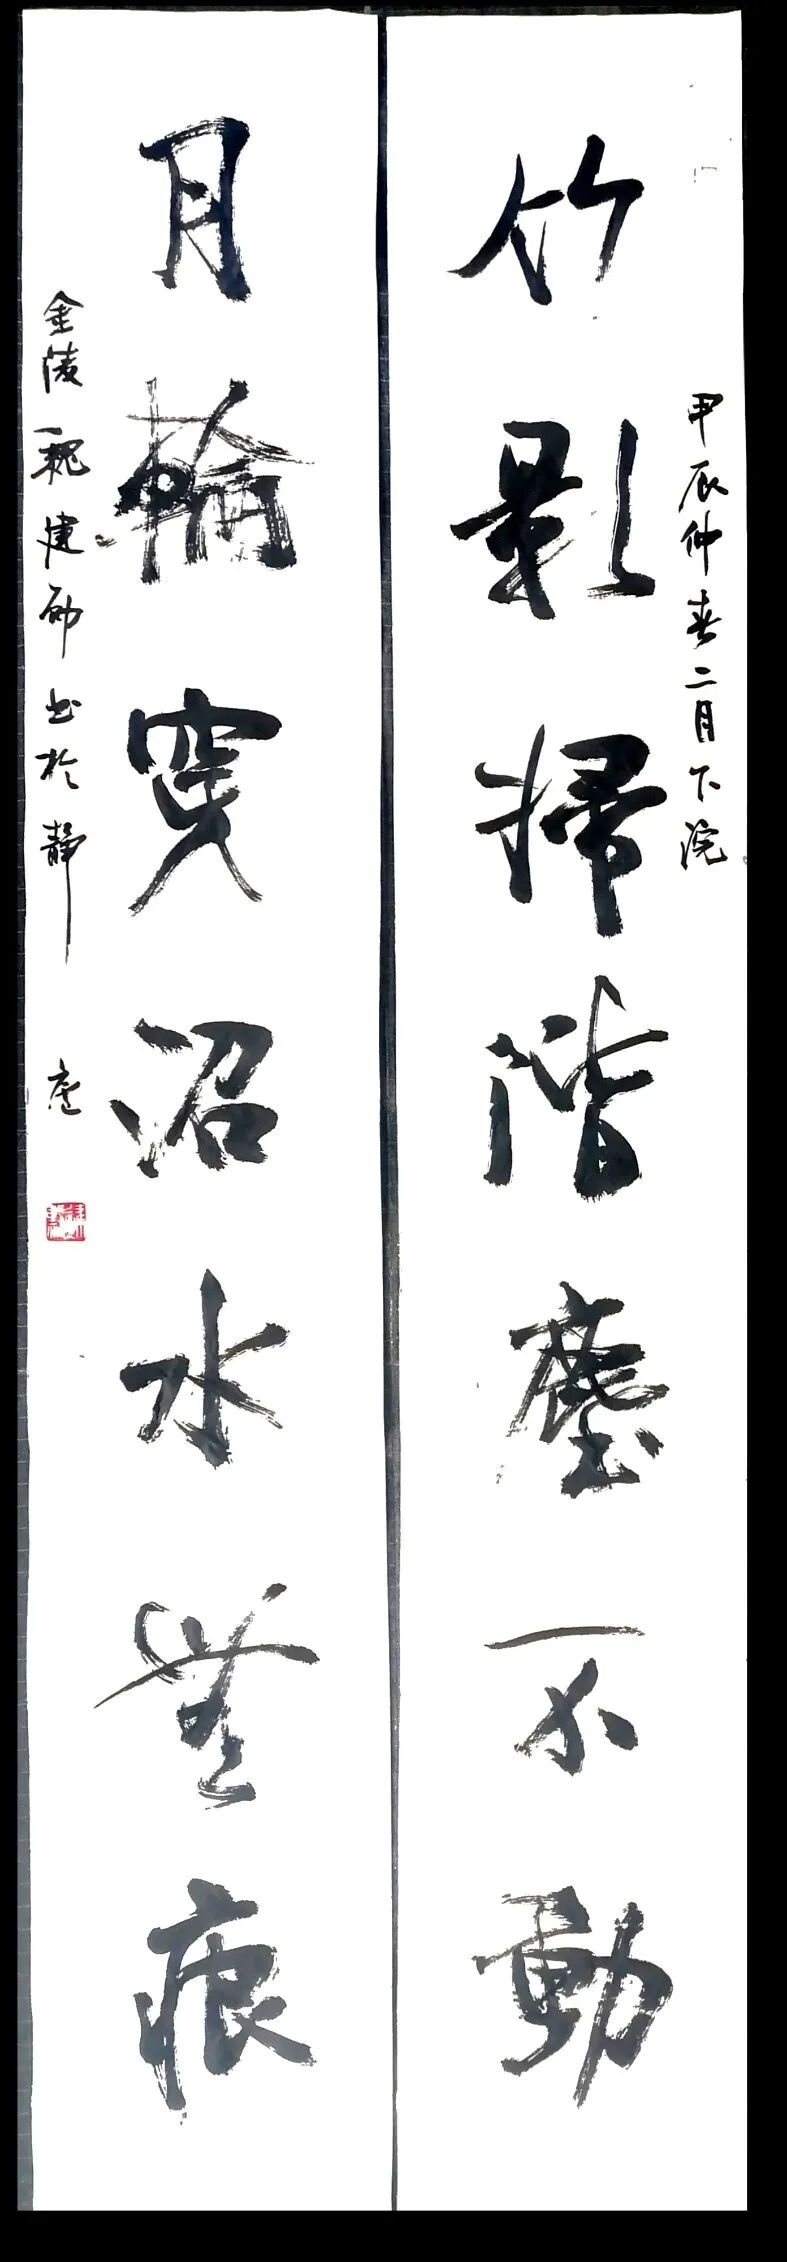 甲辰仲春二月下浣
竹影掃階塵不動
月輪穿沼水無痕
金陵魏建勋书於静庐